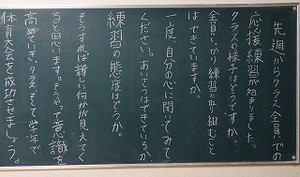 先週からクラス全員での
応援練習が始まりました。
クラスの様子はどうですか。
全員しっかり練習に取り組むこと
はできていますか。
一度、自分の心に聞いてみて
ください。あいさつはできているか
練習の態度はどうか。
そうすれば新しい何かが見えてく
ると思います。そうやって意識を
高めていき、クラス、そして学年で
体育大会を成功させましょう。